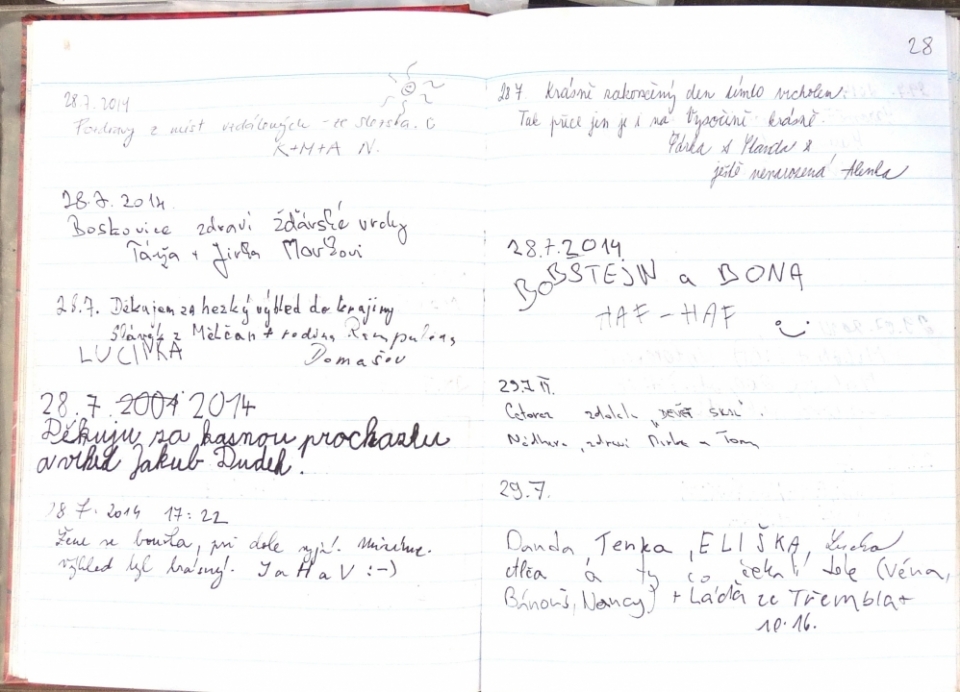 28.7.2014
Pozdravy z míst vzdálených - ze Slezska.
K+M+A N.
28.7.2014
Boskovice zdraví žďárské vrchy
Táňa + Jirka
28.7. Děkujem za hezký výhled do krajiny
z Měřčan + rodina
LUCINKA Domašov
28.7. 2001 2014
Děkuju za kasnou prochasku
a vhled Jakub Dudek.
28.7.2014 17:22
se bouřka, dole
výhled byl krásný! J a H a V :-)
28
28.7. Krásně zakončený den tímto vrcholem.
Tak přece jen je i na Vysočině krásně.
Šárka s
ještě nenarozená Alenka
28.7.2014
BOBŠTEJN a BONA
HAF-HAF
29.7.
zdolala "DEVĚT SKAL".
Nádhera, zdraví Mirka a Tom
29.7.
Danda, Tenka, ELIŠKA, Lucka
a ty co čekali dole (Véna,
Bánouš, Nancy) + Láďa ze Třemblat
10.16.